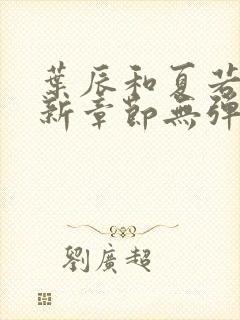 葉辰和夏若
新章節無彈
劉廣超